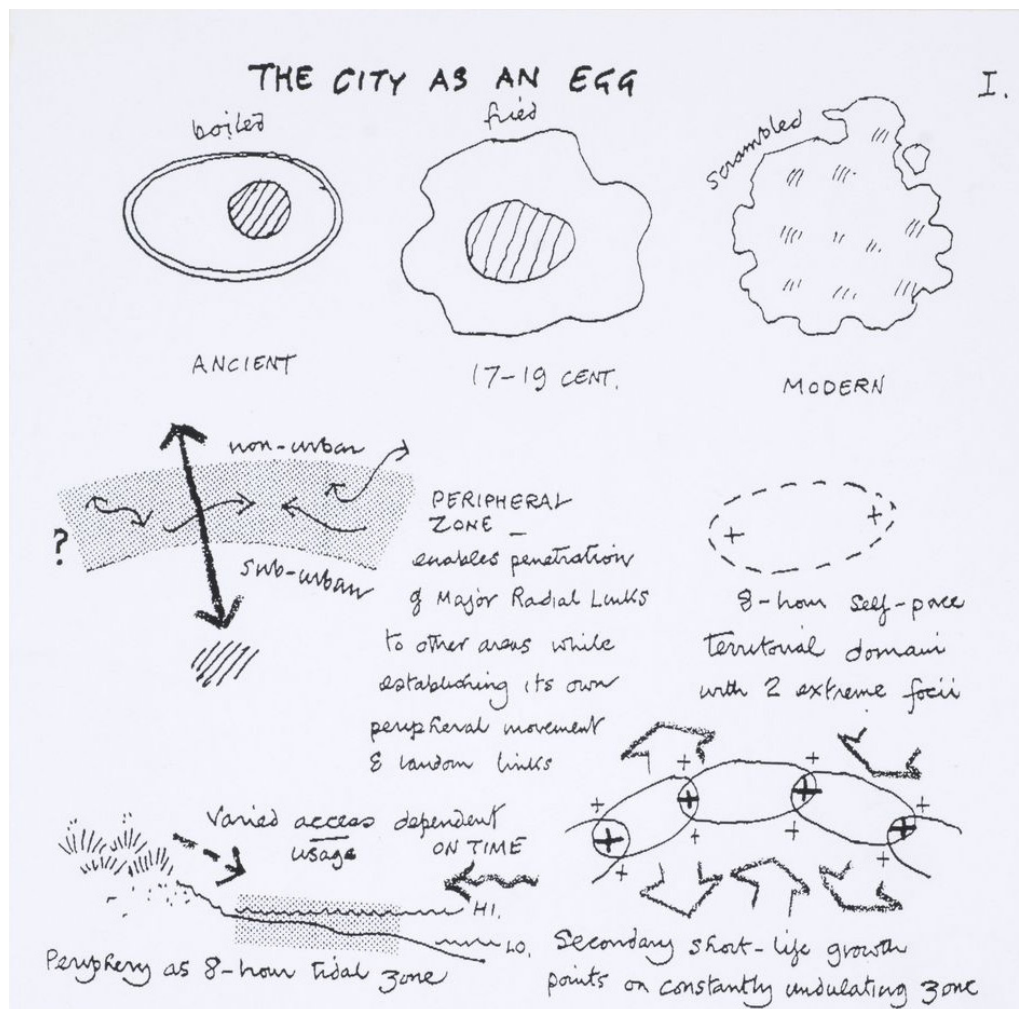 THE CITY AS AN EGG
I.
boiled
fried
scrambled
ANCIENT
17-19 CENT.
MODERN
non-urban
?
sub-urban
PERIPHERAL
ZONE –
enables penetration
of Major Radial Links
to other areas while
establishing its own
peripheral movement
& random links
8-hour self-pace
territorial domain
with 2 extreme focii
Varied access dependent
usage ON TIME
HI.
LO.
Periphery as 8-hour tidal zone
Secondary short-life growth
points on constantly undulating zone